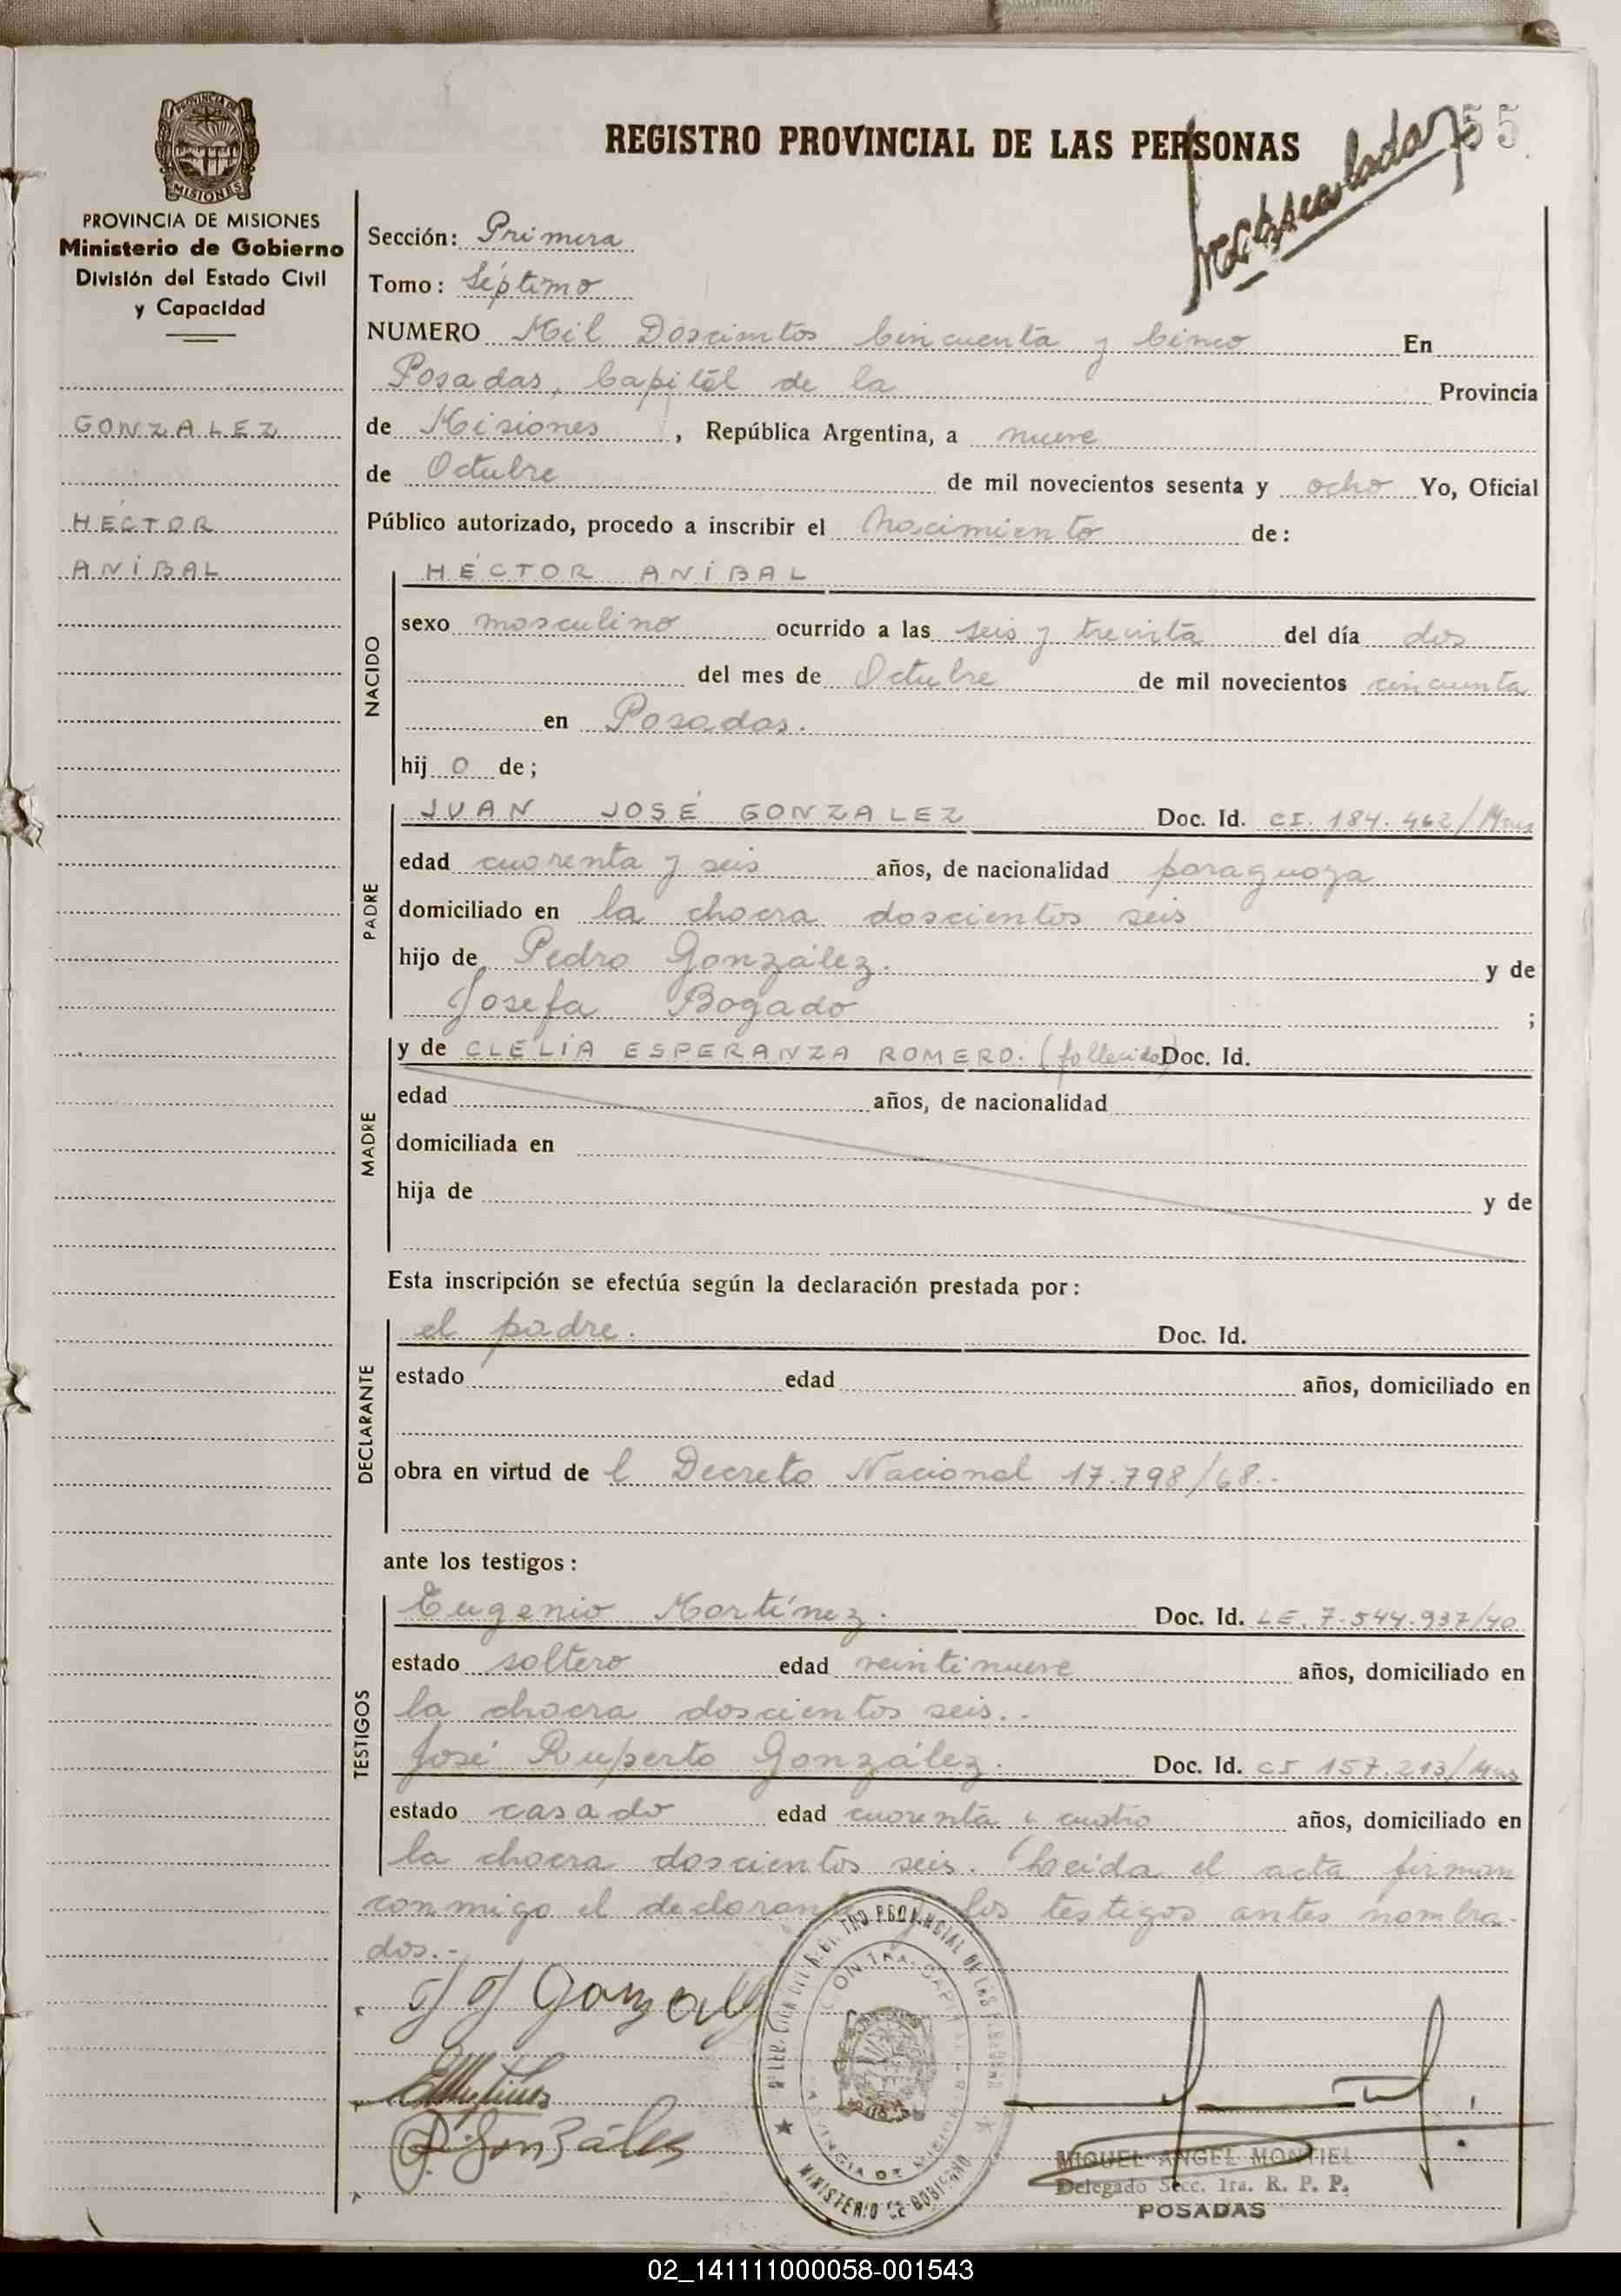 REGISTRO PROVINCIAL DE LAS PERSONAS
55
Matriculado
PROVINCIA DE MISIONES
Ministerio de Gobierno
División del Estado Civil
y Capacidad
GONZALEZ
HÉCTOR
ANÍBAL
Sección: Primera
Tomo: Séptimo
NUMERO Mil Doscientos Cincuenta y Cinco En
Posadas, Capital de la Provincia
de Misiones, República Argentina, a nueve
de Octubre de mil novecientos sesenta y ocho Yo, Oficial
Público autorizado, procedo a inscribir el Nacimiento de:
NACIDO
HÉCTOR ANÍBAL
sexo masculino ocurrido a las seis y treinta del día dos
del mes de Octubre de mil novecientos cincuenta
en Posadas.
hij o de;
PADRE
JUAN JOSÉ GONZALEZ Doc. Id. CI. 184.462/Mnes
edad cuarenta y seis años, de nacionalidad paraguaya
domiciliado en la chacra doscientos seis
hijo de Pedro González. y de
Josefa Bogado ;
MADRE
y de CLELIA ESPERANZA ROMERO. (fallecida) Doc. Id.
edad años, de nacionalidad
domiciliada en
hija de y de
Esta inscripción se efectúa según la declaración prestada por:
DECLARANTE
el padre. Doc. Id.
estado edad años, domiciliado en
obra en virtud de l Decreto Nacional 17.798/68.-
ante los testigos:
TESTIGOS
Eugenio Martínez. Doc. Id. LE. 7.544.937/40
estado soltero edad veintinueve años, domiciliado en
la chacra doscientos seis.-
José Ruperto González. Doc. Id. CI 157.213/Mnes
estado casado edad cuarenta y cuatro años, domiciliado en
la chacra doscientos seis. Leída el acta firman
conmigo el declarante los testigos antes nombra-
dos.-
J J Gonzalez
González
MINISTERIO DE GOBIERNO
MIGUEL ANGEL MONTIEL
Delegado Secc. 1ra. R. P. P.
POSADAS
02_141111000058-001543